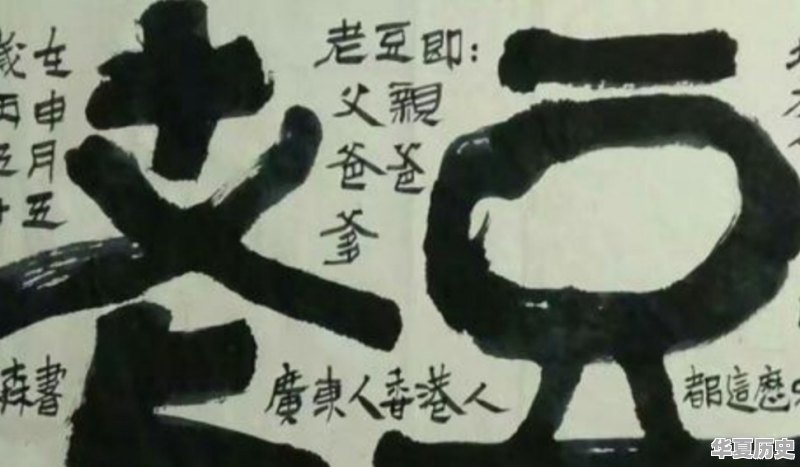 老豆
老豆即：
父親
爸爸
爹
廣東人香港人
都這麽
歲在
丙申
五月
五
森書
华夏历史